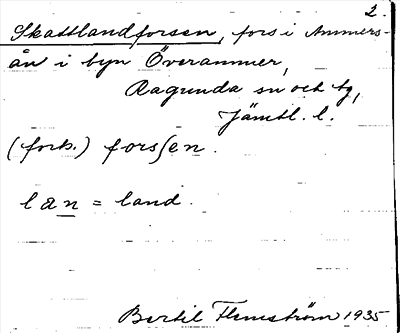 2.
Skattlandforsen, fors i Ammers-
ån i byn Överammer,
Ragunda sn och tg,
Jämtl. l.
(forts.) forsʃen.
lan = land.
Bertil Flemström 1935